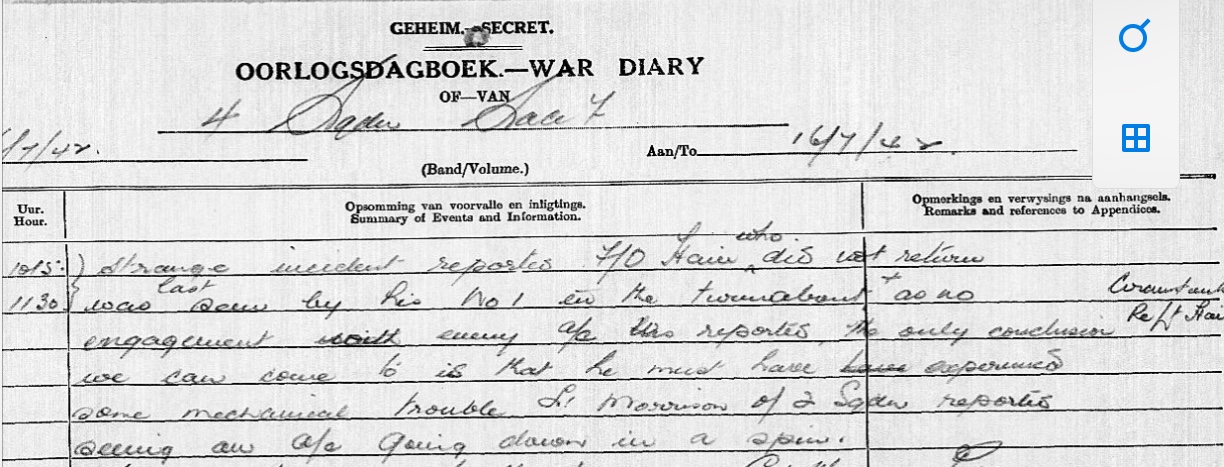 GEHEIM.—SECRET.
OORLOGSDAGBOEK.—WAR DIARY
OF—VAN
4 Sqdn Saaf
/7/42.
Aan/To 16/7/42.
(Band/Volume.)
Uur.
Hour.
Opsomming van voorvalle en inligtings.
Summary of Events and Information.
Opmerkings en verwysings na aanhangsels.
Remarks and references to Appendices.
1015: Strange incident reported F/O Hain who did not return
1130 was last seen by his No 1 in the turnabout + as no
engagement with enemy a/c was reported, the only conclusion
we can come to is that he must have have experienced
some mechanical trouble. Lt Morrison of 2 Sqdn reported
seeing an a/c going down in a spin.